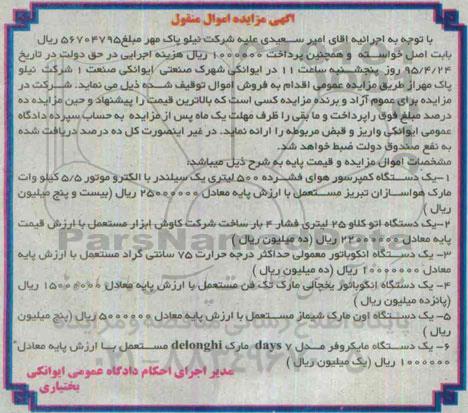 آگهی مزایده اموال منقول
با توجه به اجرائیه اقای امیر سعیدی علیه شرکت نیلو پاک مهر مبلغ۵۶۷۰۴۷۹۵ ریال
بابت اصل خواسته و همچنین پرداخت ۱۰۰۰۰۰۰ ریال هزینه اجرایی در حق دولت در تاریخ
۹۵/۴/۲۴ روز پنجشنبه ساعت ۱۱ در ایوانکی شهرک صنعتی ایوانکی صنعت ۱ شرکت نیلو
پاک مهراز طریق مزایده عمومی اقدام به فروش اموال توقیف شده ذیل می نماید. شرکت در
مزایده برای عموم آزاد و برنده مزایده کسی است که بالاترین قیمت را پیشنهاد و حین مزایده ده
درصد مبلغ فوق راپرداخت و ما بقی را ظرف مهلت یک ماه پس از مزایده به حساب سپرده دادگاه
عمومی ایوانکی واریز و قبض مربوطه را ارائه نماید. در غیر اینصورت کل ده درصد دریافت شده
به نفع صندوق دولت ضبط خواهد شد.
مشخصات اموال مزایده و قیمت پایه به شرح ذیل میباشد:
۱-یک دستگاه کمپرسور هوای فشرده ۵۰۰ لیتری یک سیلندر با الکترو موتور ۵/۵ کیلو وات
مارک هواسازان تبریز مستعمل با ارزش پایه معادل ۲۵۰۰۰۰۰۰ ریال (بیست و پنج میلیون
ریال )
۲-یک دستگاه اتو کلاو ۲۵ لیتری فشار ۴ بار ساخت شرکت کاوش ابزار مستعمل با ارزش قیمت
پایه معادل ۲۲۰۰۰۰۰۰ ریال (ده میلیون ریال )
۳-یک دستگاه انکوباتور معمولی حداکثر درجه حرارت ۷۵ سانتی گراد مستعمل با ارزش پایه
معادل ۱۰۰۰۰۰۰۰ ریال (ده میلیون ریال )
۴-یک دستگاه انکوباتور یخچالی مارک تک فن مستعمل با ارزش پایه معادل ۱۵۰۰۰۰۰۰ ریال
(پانزده میلیون ریال)
۵-یک دستگاه اون مارک شیماز مستعمل با ارزش پایه معادل ۵۰۰۰۰۰۰ ریال (پنج میلیون
ریال )
۶-یک دستگاه مایکروفر مدل days ۷ مارک delonghi مستعمل با ارزش پایه معادل
۱۰۰۰۰۰۰ ریال (یک میلیون ریال )
مدیر اجرای احکام دادگاه عمومی ایوانکی
بختیاری